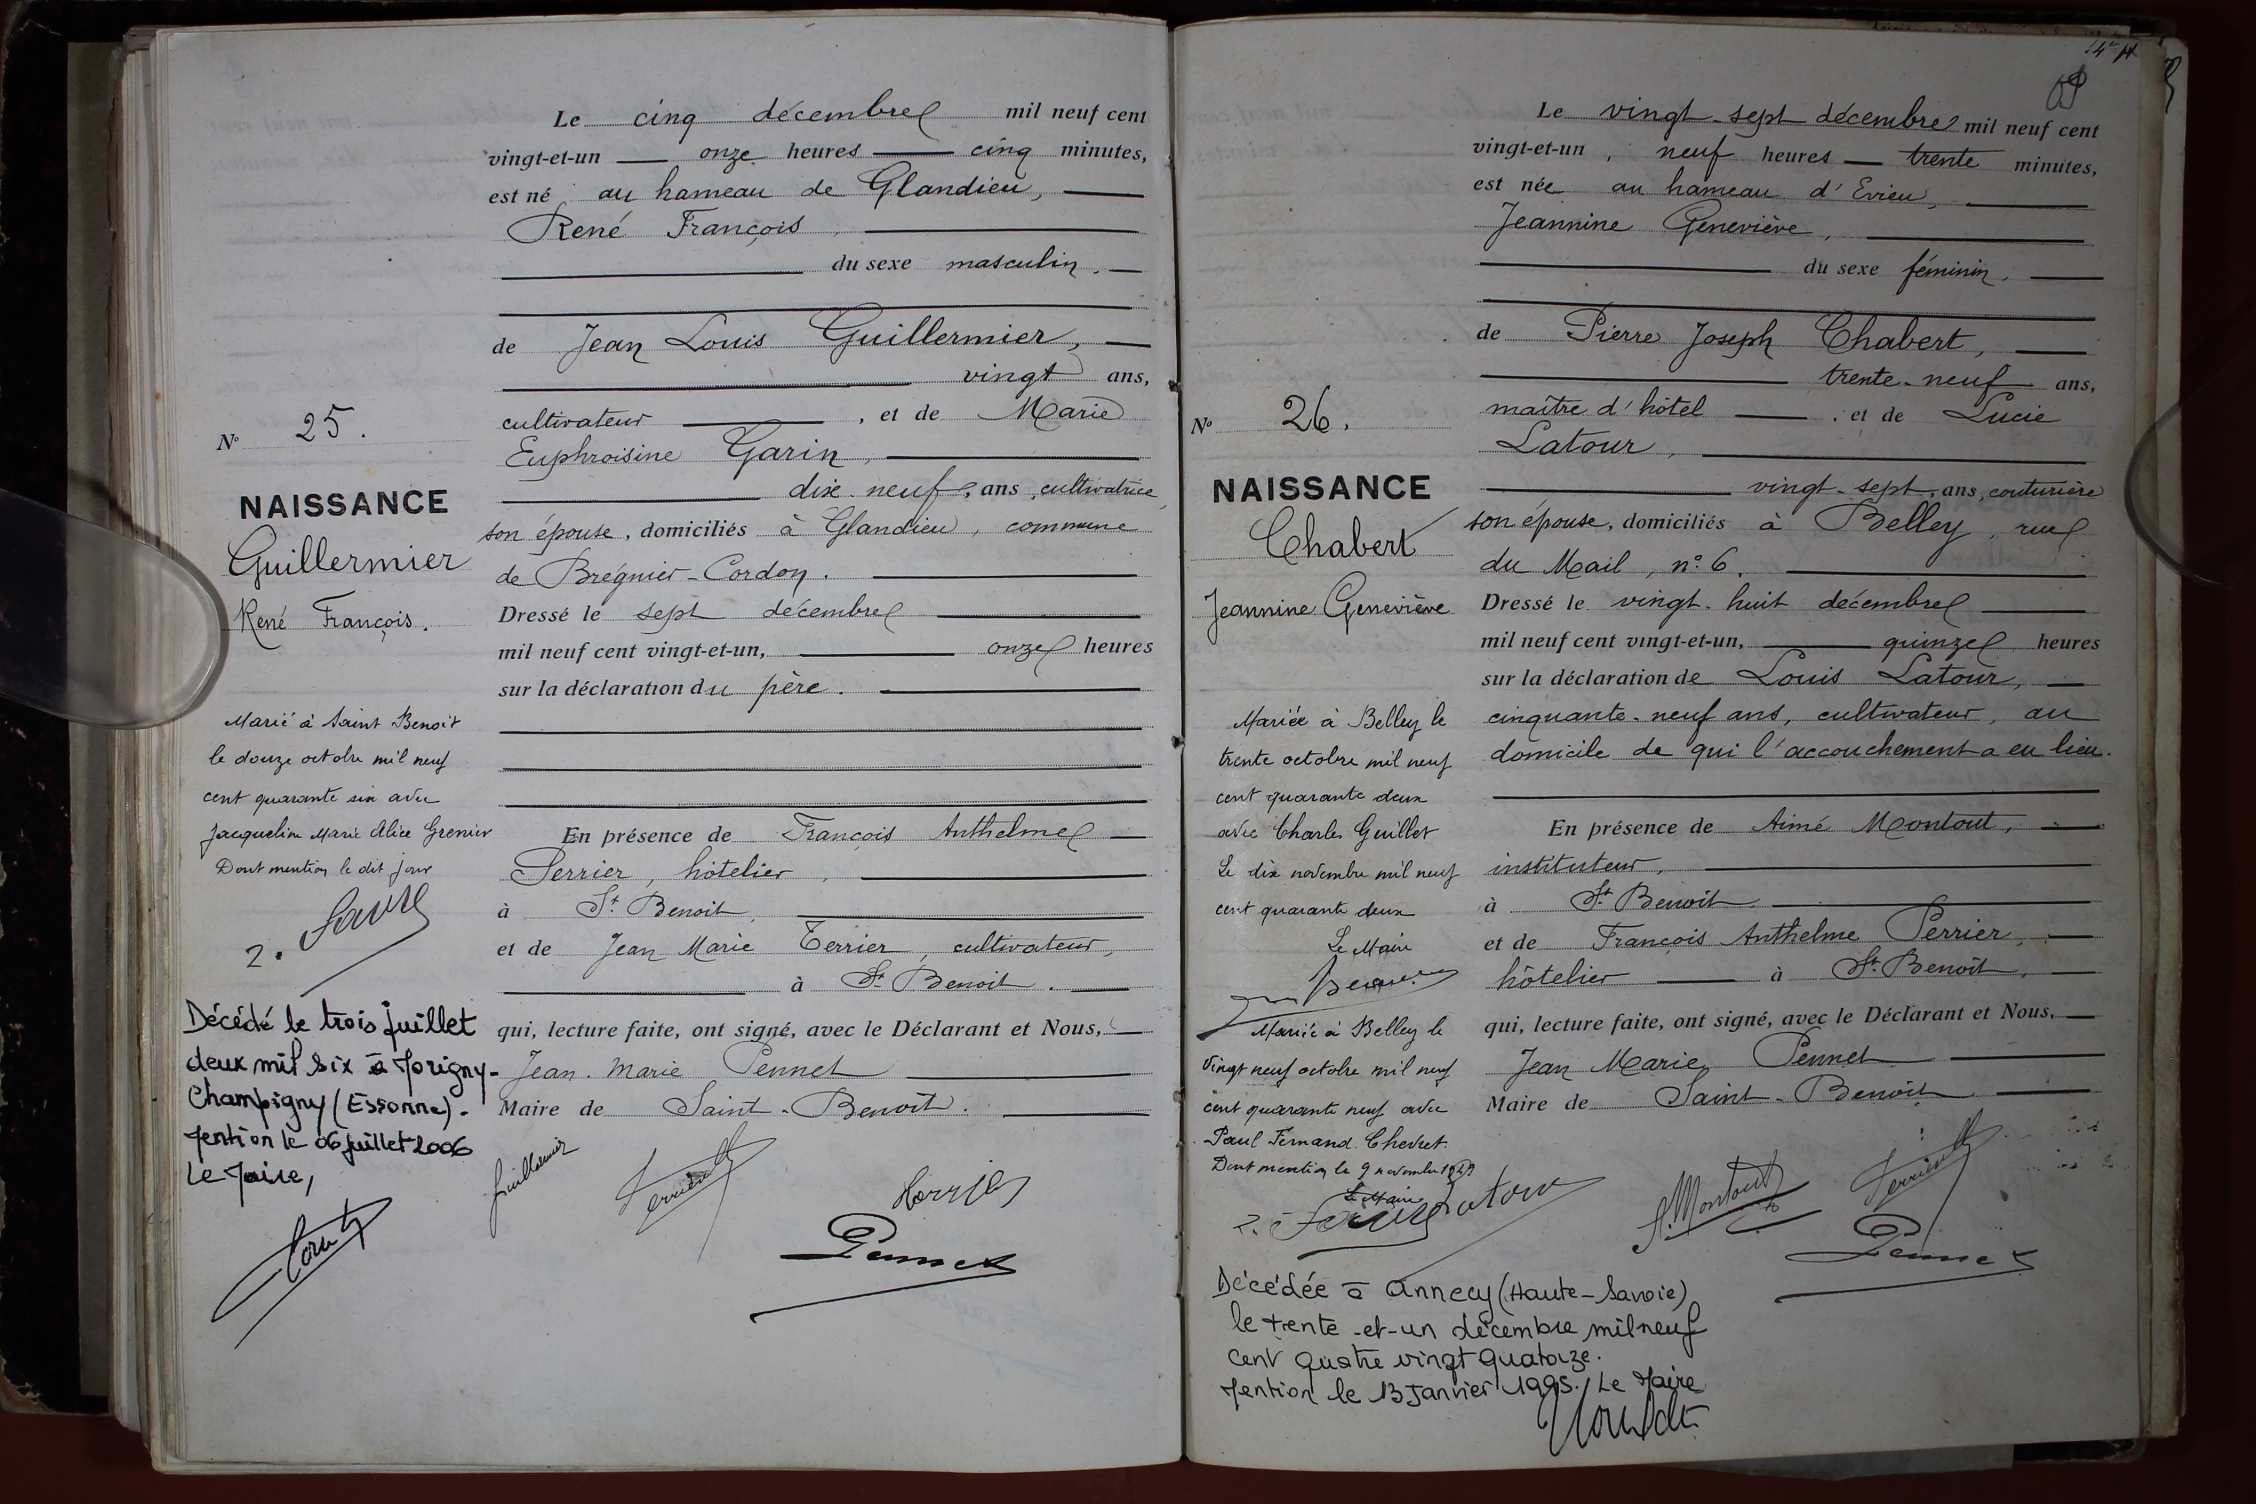 Le cinq décembre mil neuf cent
vingt-et-un onze heures cinq minutes,
est né au hameau de Glandieu,
René François,
du sexe masculin.
de Jean Louis Guillermier,
vingt ans,
cultivateur, et de Marie
Euphroisine Garin,
dix-neuf, ans, cultivatrice,
son épouse, domiciliés à Glandieu, commune
de Brégnier-Cordon.
Dressé le sept décembre
mil neuf cent vingt-et-un, onze heures
sur la déclaration du père.
En présence de François Anthelme
Perrier, hôtelier,
à St. Benoit,
et de Jean Marie Terrier, cultivateur,
à St. Benoit.
qui, lecture faite, ont signé, avec le Déclarant et Nous,
Jean-Marie Pennet
Maire de Saint-Benoît.
Guillermier
Pennet
No 25.
NAISSANCE
Guillermier
René François.
Marié à Saint Benoit
le douze octobre mil neuf
cent quarante six avec
Jacqueline Marie Alice Grenier
Dont mention le dit jour
2.
Décédé le trois juillet
deux mil six à Morigny-
Champigny (Essonne).
Mention le 06 juillet 2006
Le Maire,
14
Le vingt-sept décembre mil neuf cent
vingt-et-un, neuf heures trente minutes,
est née au hameau d'Evieu,
Jeannine Geneviève,
du sexe féminin.
de Pierre Joseph Chabert,
trente-neuf ans,
maître d'hôtel, et de Lucie
Latour,
vingt-sept, ans, couturière
son épouse, domiciliés à Belley, rue
du Mail, no. 6.
Dressé le vingt-huit décembre
mil neuf cent vingt-et-un, quinze heures
sur la déclaration de Louis Latour,
cinquante-neuf ans, cultivateur, au
domicile de qui l'accouchement a eu lieu.
En présence de Aimé Montout,
instituteur,
à St. Benoit
et de François Anthelme Perrier,
hôtelier à St. Benoît,
qui, lecture faite, ont signé, avec le Déclarant et Nous,
Jean Marie Pennet
Maire de Saint-Benoît
Latour
A. Montout
Pennet
No 26.
NAISSANCE
Chabert
Jeannine Geneviève
Mariée à Belley le
trente octobre mil neuf
cent quarante deux
avec Charles Guillot
Le dix novembre mil neuf
cent quarante deux
Le Maire
Mariée à Belley le
vingt neuf octobre mil neuf
cent quarante neuf avec
Paul Fernand Chevret.
Dont mention le 9 novembre 1949
Le Maire
2.
Décédée à Annecy (Haute-Savoie)
le trente-et-un décembre mil neuf
cent quatre vingt quatorze.
Mention le 13 Janvier 1995. Le Maire